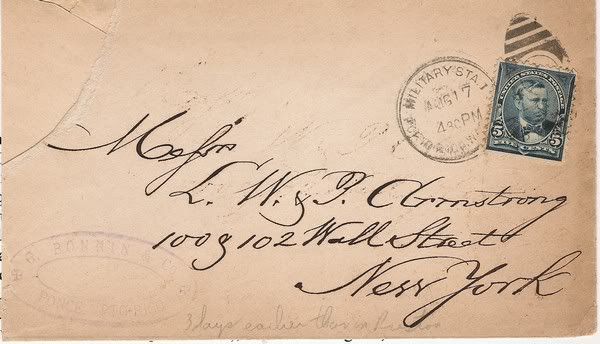 MILITARY STA. 1
AUG 17
4 30 PM
UNITED STATES POSTAGE
5 5
FIVE CENTS
Messrs
L. W. & P. Armstrong
100 & 102 Wall Street
New York
BONNIN & C
PONCE PTO-RICO
3 days earlier than in